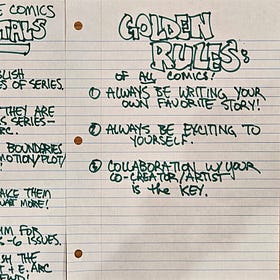 E COMICS
TALS
LISH
ES OF SERIES.
THEY ARE
S SERIES-
RC.
BOUNDARIES
MOTION/PLOT/
!
AKE THEM
WANT MORE!
HM FOR
-6 ISSUES.
SH THE
T + E. ARC
GOLDEN
RULES:
OF ALL COMICS!
① ALWAYS BE WRITING YOUR
OWN FAVORITE STORY!
② ALWAYS BE EXCITING TO
YOURSELF.
③ COLLABORATION W/ YOUR
CO-CREATOR/ARTIST
IS THE KEY.